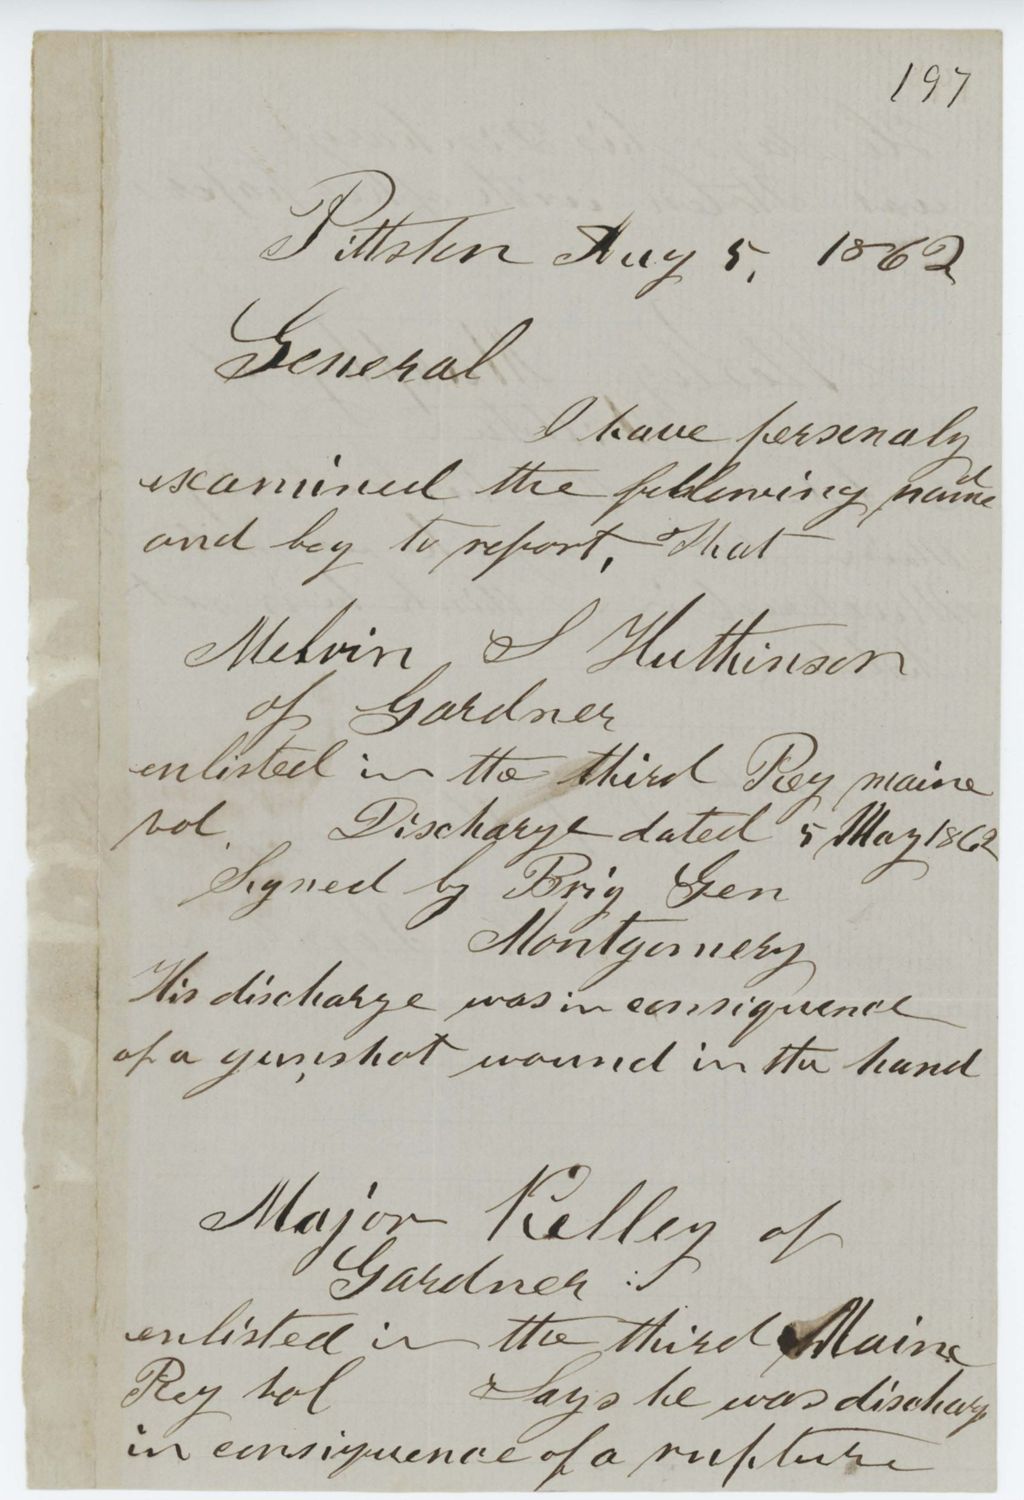 197
Pittston Aug 5, 1862
General
I have personaly
examined the following named
and beg to report, That
Melvin S Hutkinson
of Gardner
enlisted in the third Reg maine
vol. Discharge dated 5 May 1862
Signed by Brig Gen
Montgomery
His discharge was in consiquence
of a gunshot wound in the hand
Major Kelley of
Gardner :
enlisted in the third Maine
Reg vol Says he was discharg
in consiquence of a rupture